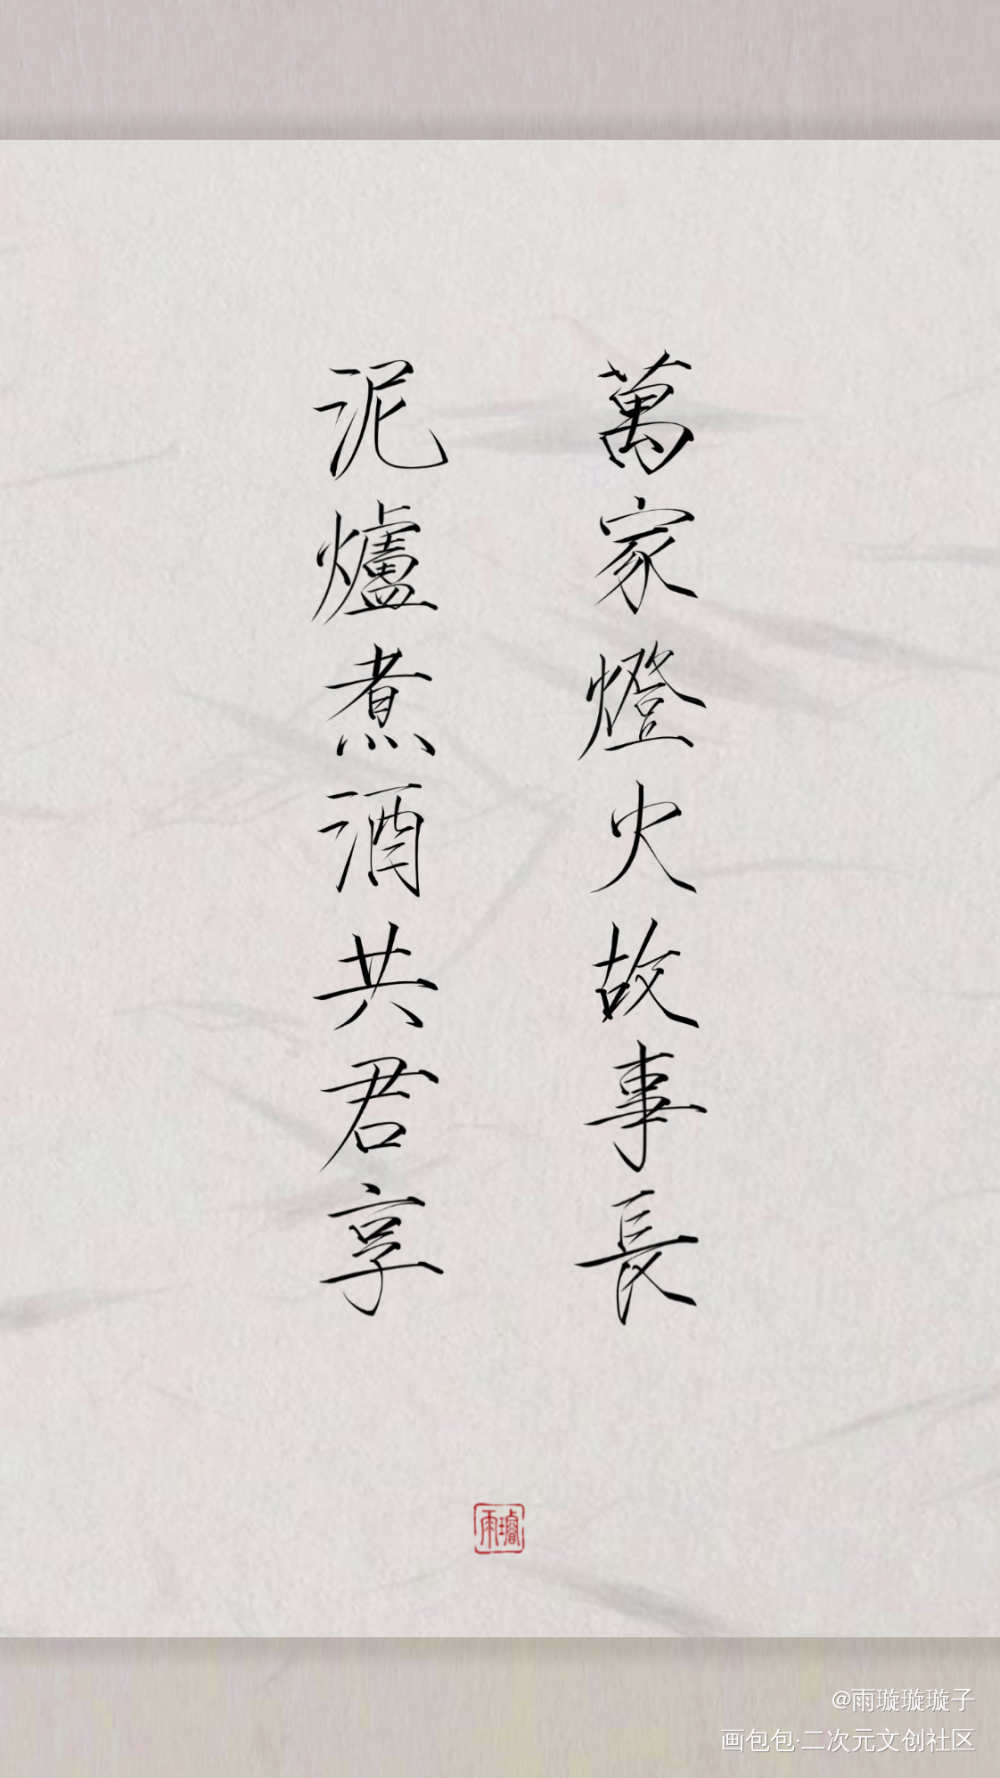 萬家燈火故事長
泥爐煮酒共君享
雨璿
@雨璇璇璇子
画包包·二次元文创社区